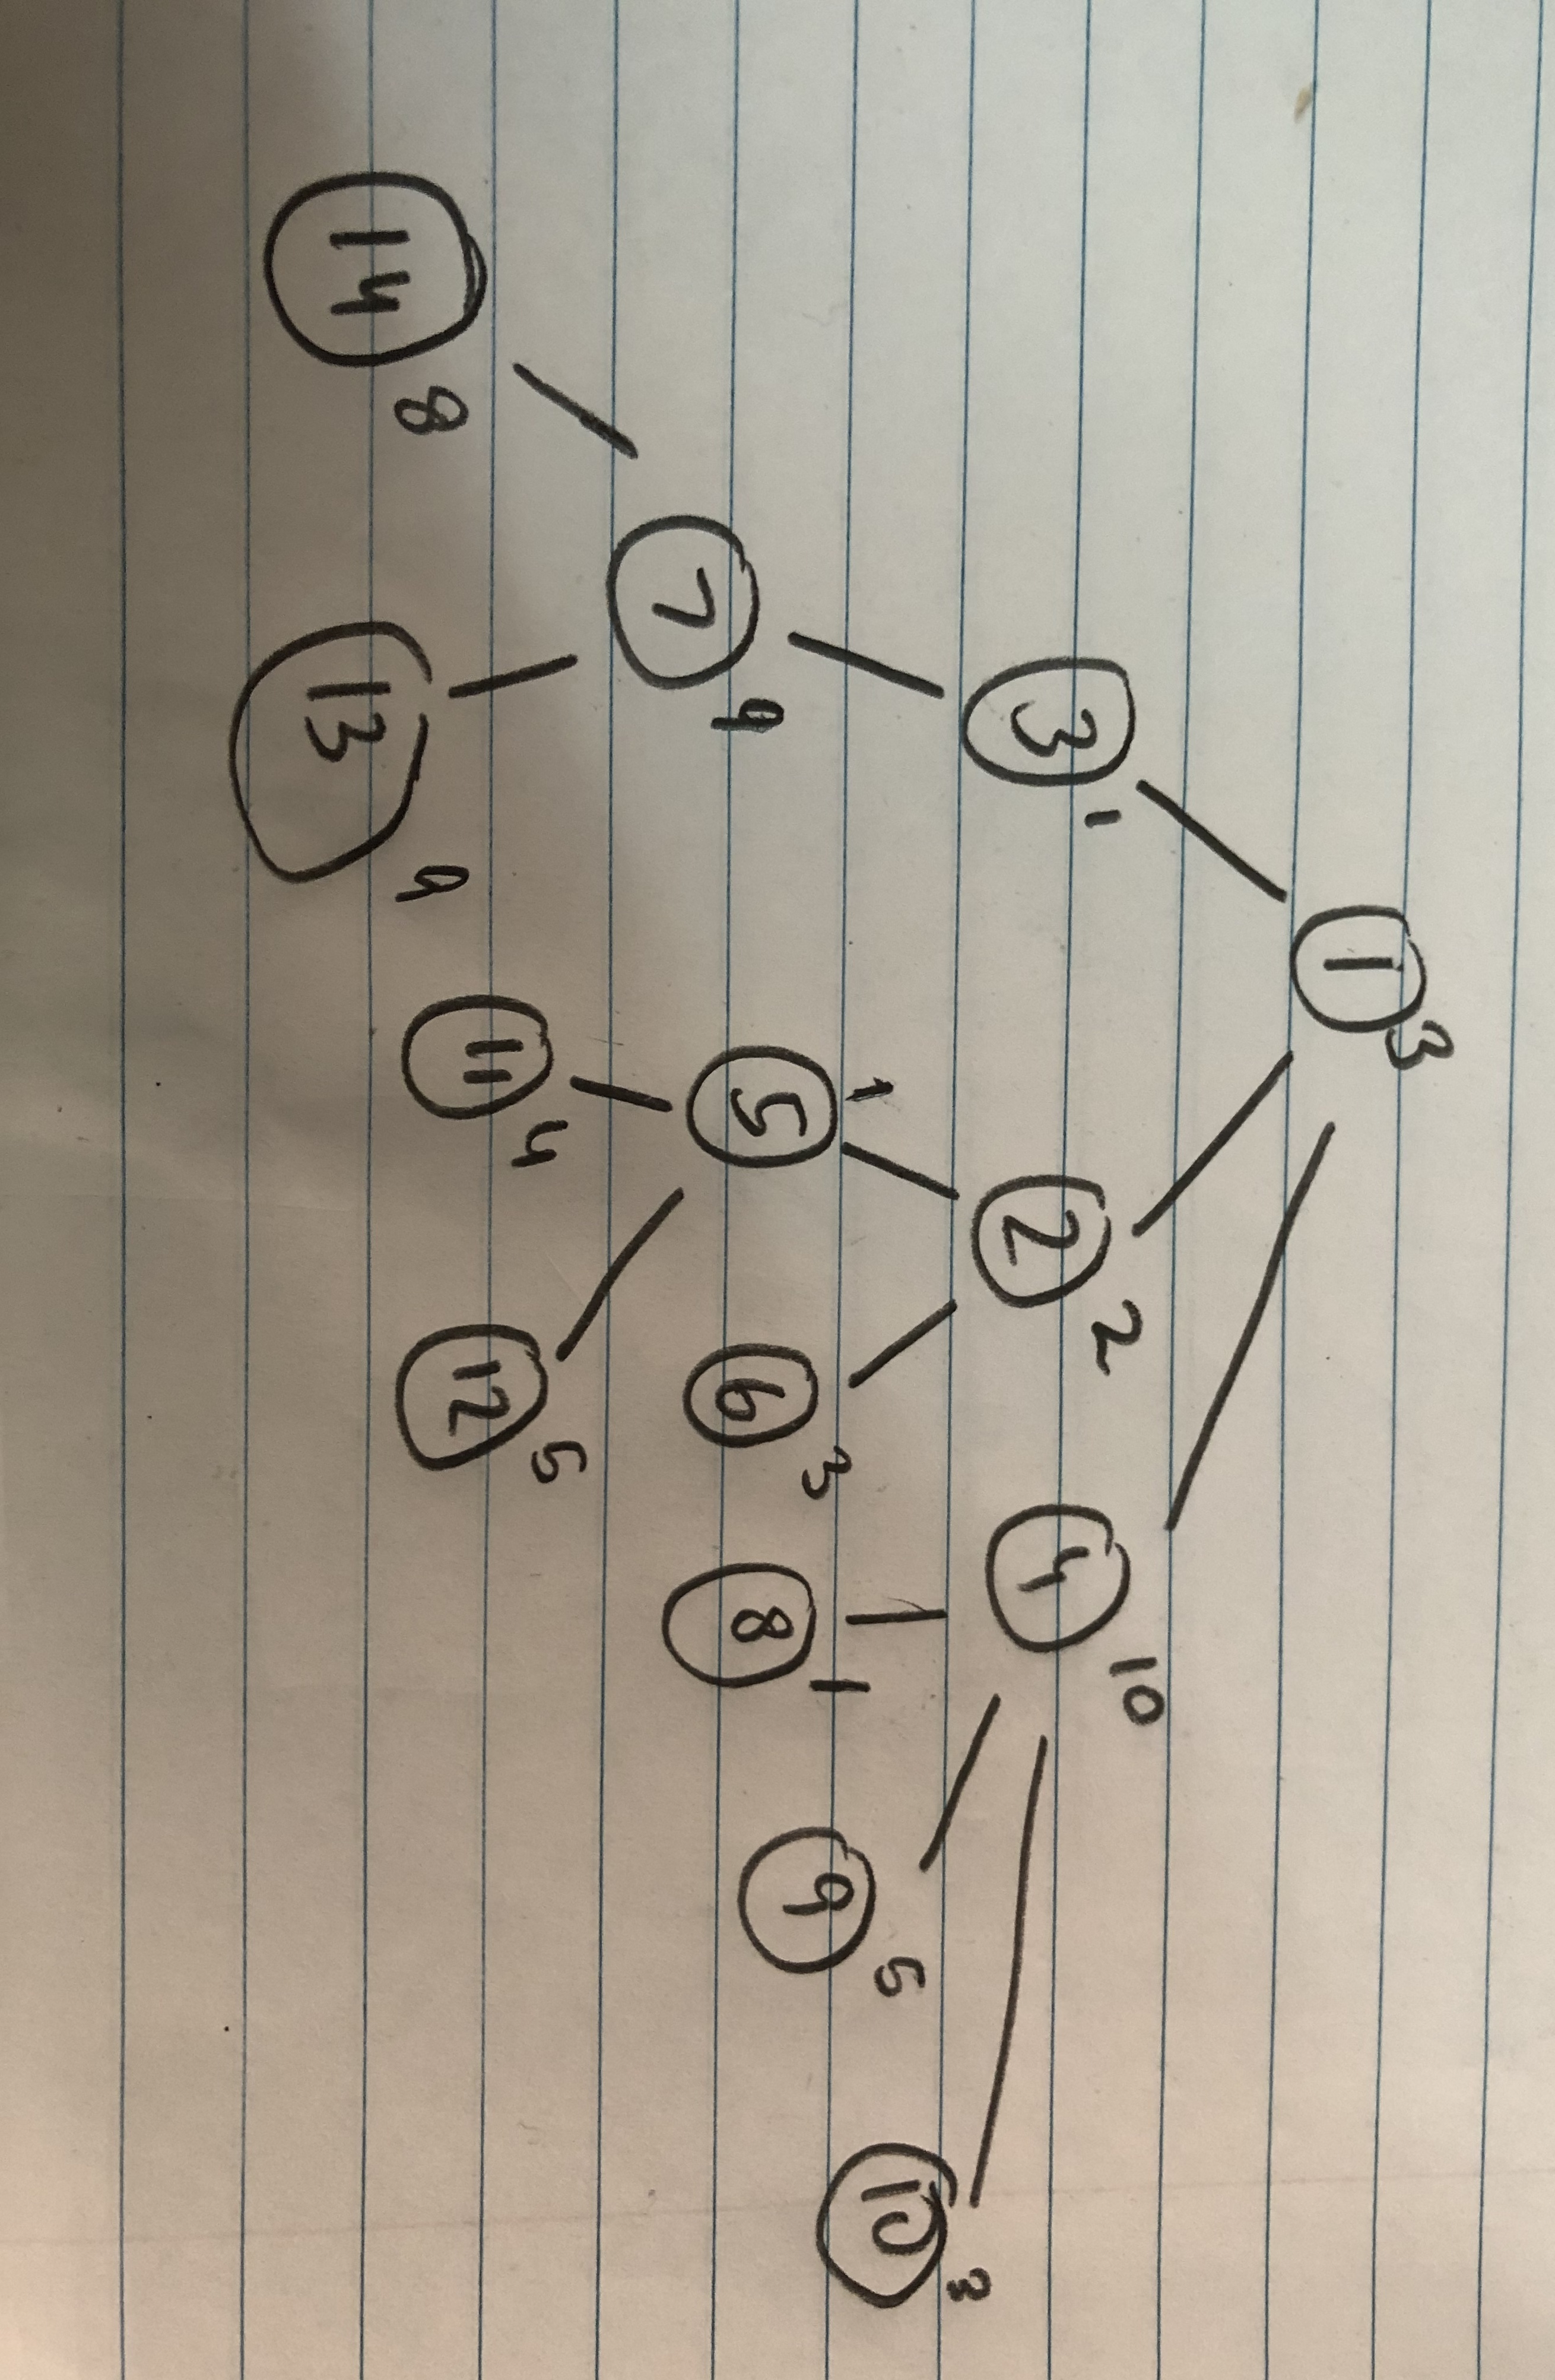 1 3
3 1 2 2 4 10
7 9 5 1 6 3 8 1 9 5 10
14 8 13 9 11 4 12 5